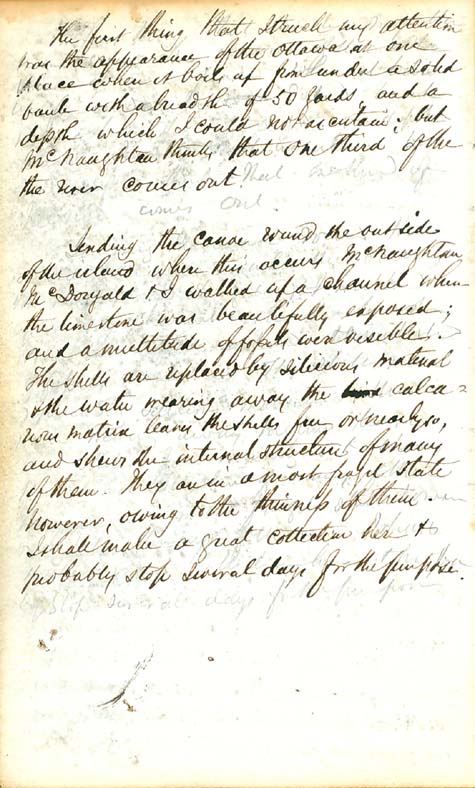 The first thing that struck my attention
was the appearance of the Ottawa at one
place where it boils up from under a solid
bank with a breadth of 50 yards, and a
depth which I could not ascertain; but
McNaughtan thinks that one third of the
the river comes out.
that one third of
comes out.
Sending the canoe round the outside
of the island where this occurs McNaughtan
McDougald & I walked up a channel where
the limestone was beautifully exposed;
and a multitude of fossils were visible.
The shells are replaced by silicious material
& the water wearing away the calca=
rous matrix leaves the shells free or nearly so,
and shews the internal structure of many
of them. They are in a most fragile state
however, owing to the thinness of them.
I shall make a great collection here &
probably stop several days for the purpose.
stop several days for the purpose